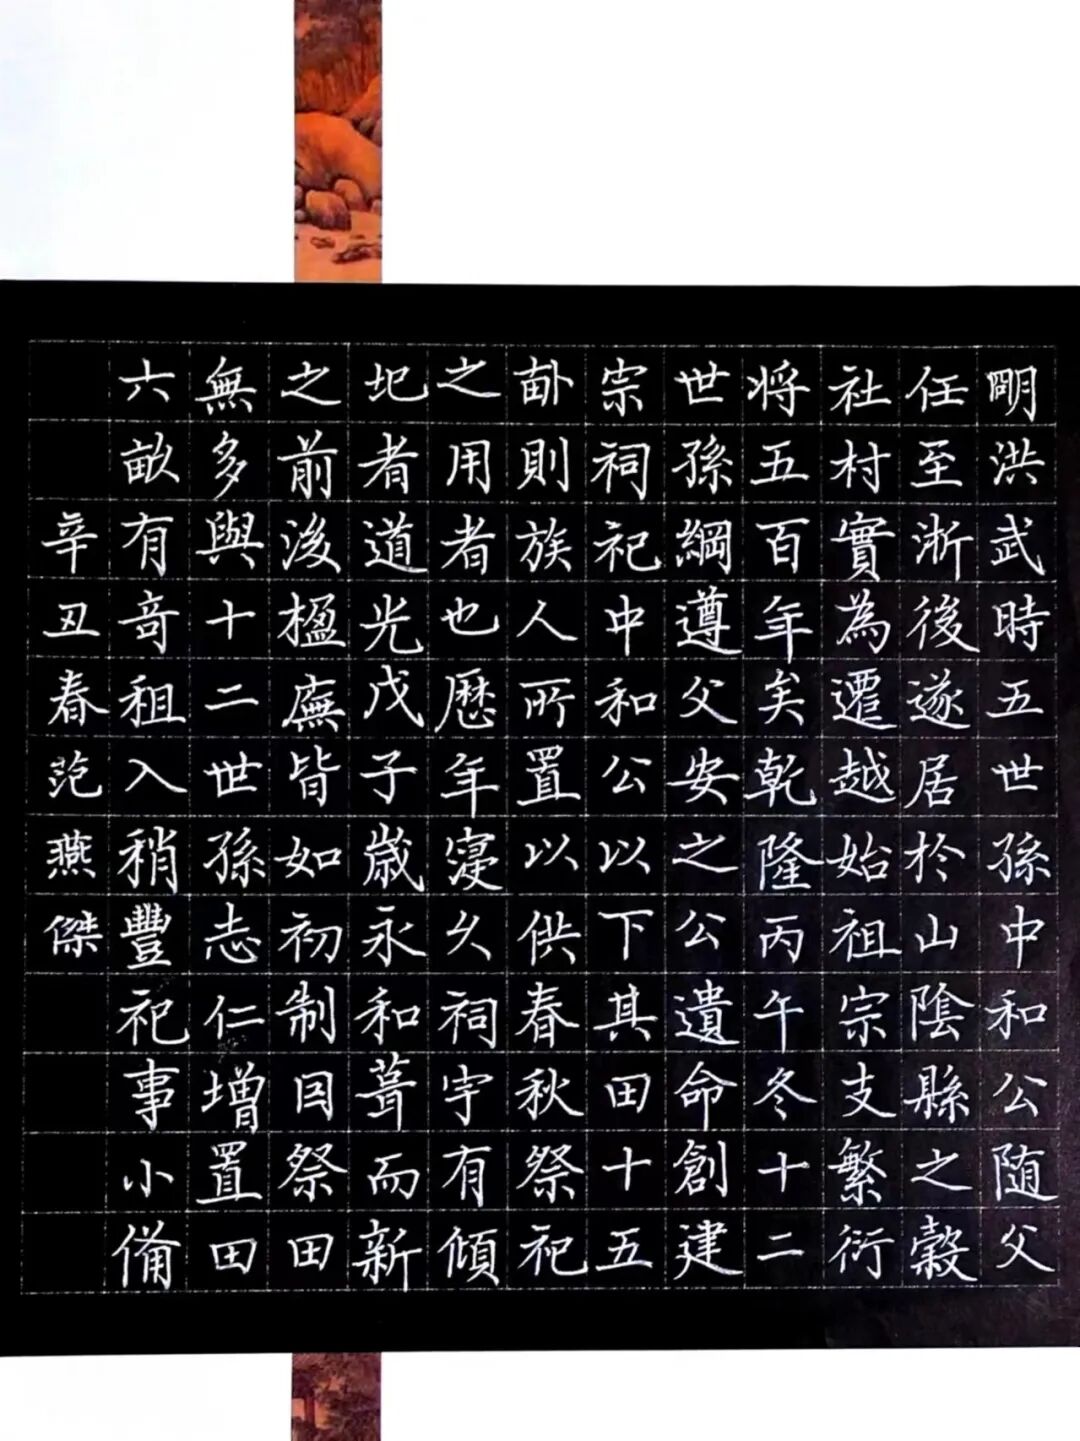 明洪武時五世孫中和公随父
任至浙後遂居於山陰縣之穀
社村實為遷越始祖宗支繁衍
将五百年矣乾隆丙午冬十二
世孫綱遵父安之公遺命創建
宗祠祀中和公以下其田十五
畝則族人所置以供春秋祭祀
之用者也歷年寖久祠宇有傾
圮者道光戊子歲永和葺而新
之前後楹廡皆如初制因祭田
無多與十二世孫志仁增置田
六畝有竒租入稍豐祀事小備
辛丑春范燕傑